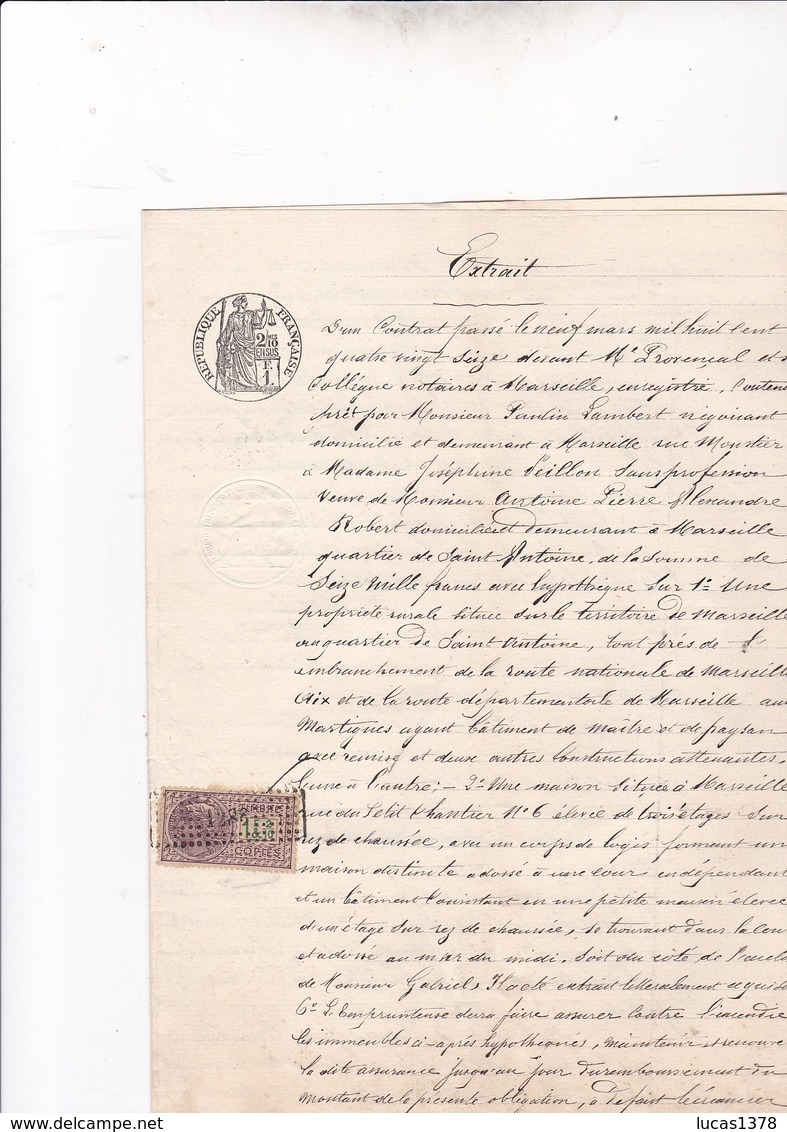 Extrait
RÉPUBLIQUE FRANÇAISE
2/10 MES
EN SUS
F.
1.
D'un Contrat passé le neuf mars mil huit cent
quatre vingt seize devant Me Provençal et s
Collègue notaires à Marseille, enregistré, Conten
prêt par Monsieur Paulin Lambert négociant
domicilié et demeurant à Marseille rue Moustier
à Madame Joséphine Veillon Sans profession
Veuve de Monsieur Antoine Pierre Alexandre
Robert domiciliée et demeurant à Marseille
quartier de Saint Antoine, de la Somme de
Seize Mille francs avec hypothèque Sur 1° Une
propriété rurale située sur le territoire de Marseille
au quartier de Saint Antoine, tout près de l'
embranchement de la route nationale de Marseille
Aix et de la route départementale de Marseille aux
Martigues ayant bâtiment de maître et de paysan
avec remise et deux autres constructions attenantes
l'une à l'autre; - 2° Une maison située à Marseille
rue du Petit Chantier N° 6 élevée de trois étages Sur
rez de chaussée, avec un corps de logis formant un
maison distincte adossé à une cour en dépendant
et un bâtiment Consistant en une petite maison élevée
d'un étage Sur rez de chaussée, se trouvant dans la cou
et adossé au mur du midi, Soit du côté de
de Monsieur Gabriel, extrait littéralement
6° L'Emprunteuse devra faire assurer contre l'incendie
les immeubles ci-après hypothéqués, maintenir et renouve
la dite assurance jusqu'au jour du remboursement du
montant de la présente obligation, à défaut le créancier
TIMBRE
COPIES
lucas1378